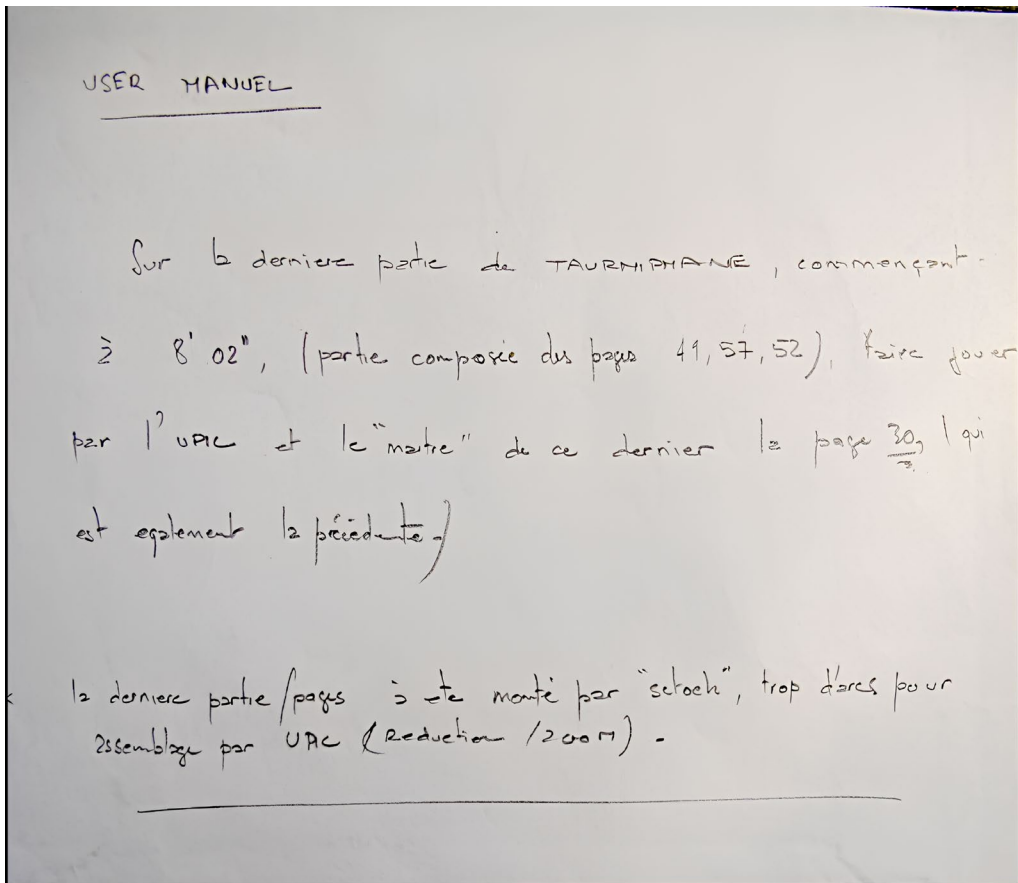 USER MANUEL
Sur la derniere partie de TAURHIPHANE, commençant
à 8'02", (partie composée des pages 49, 57, 52), faire jouer
par l'UPIC et le "maitre" de ce dernier la page 30, (qui
est egalement la précédente.)
la derniere partie/pages à été monté par "scotch", trop d'arcs pour
assemblage par UPIC (Reduction /zoom).